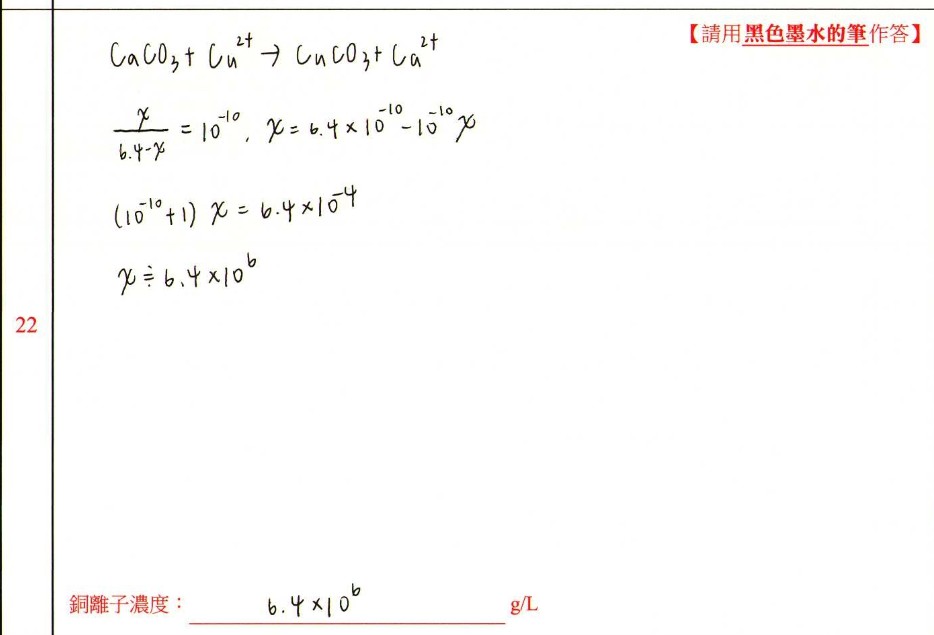 【請用黑色墨水的筆作答】
CaCO₃ + Cu²⁺ → CuCO₃ + Ca²⁺
x/(6.4-x) = 10⁻¹⁰, x = 6.4 × 10⁻¹⁰ - 10⁻¹⁰ x
(10⁻¹⁰ + 1) x = 6.4 × 10⁻⁴
x ≒ 6.4 × 10⁶
22
銅離子濃度： 6.4 × 10⁶ g/L